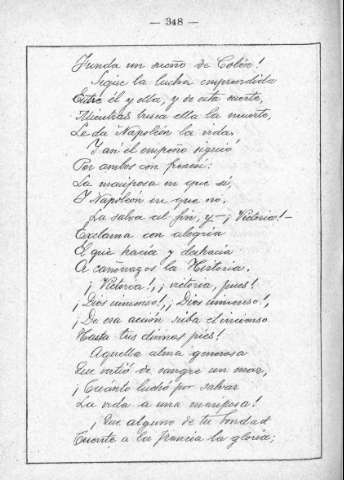 — 348 —
Funda un sueño de Colón!
Sigue la lucha emprendida
Entre él y ella, y de esta suerte,
Mientras busca ella la muerte,
Le da Napoleón la vida.
Y así el empeño siguió
Por ambos con frenesí:
La mariposa en que sí,
Y Napoleón en que no.
La salva al fin, y—¡Victoria!—
Exclama con alegría
El que hacía y deshacía
A cañonazos la Historia.
¡Victoria!, ¡victoria, pues!
¡Dios inmenso!, ¡Dios inmenso!,
¡De esa acción suba el incienso
Hasta tus divinos pies!
Aquella alma generosa
Que vertió de sangre un mar,
¡Cuánto luchó por salvar
La vida a una mariposa!
¡Que alguno de tu bondad
Cuente a la Francia la gloria;